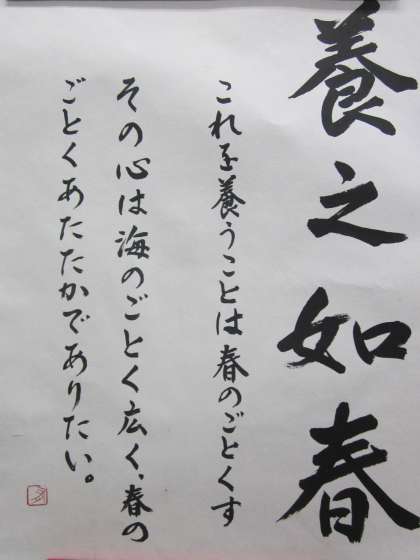 養之如春
これを養うことは春のごとくす
その心は海のごとく広く、春の
ごとくあたたかでありたい。